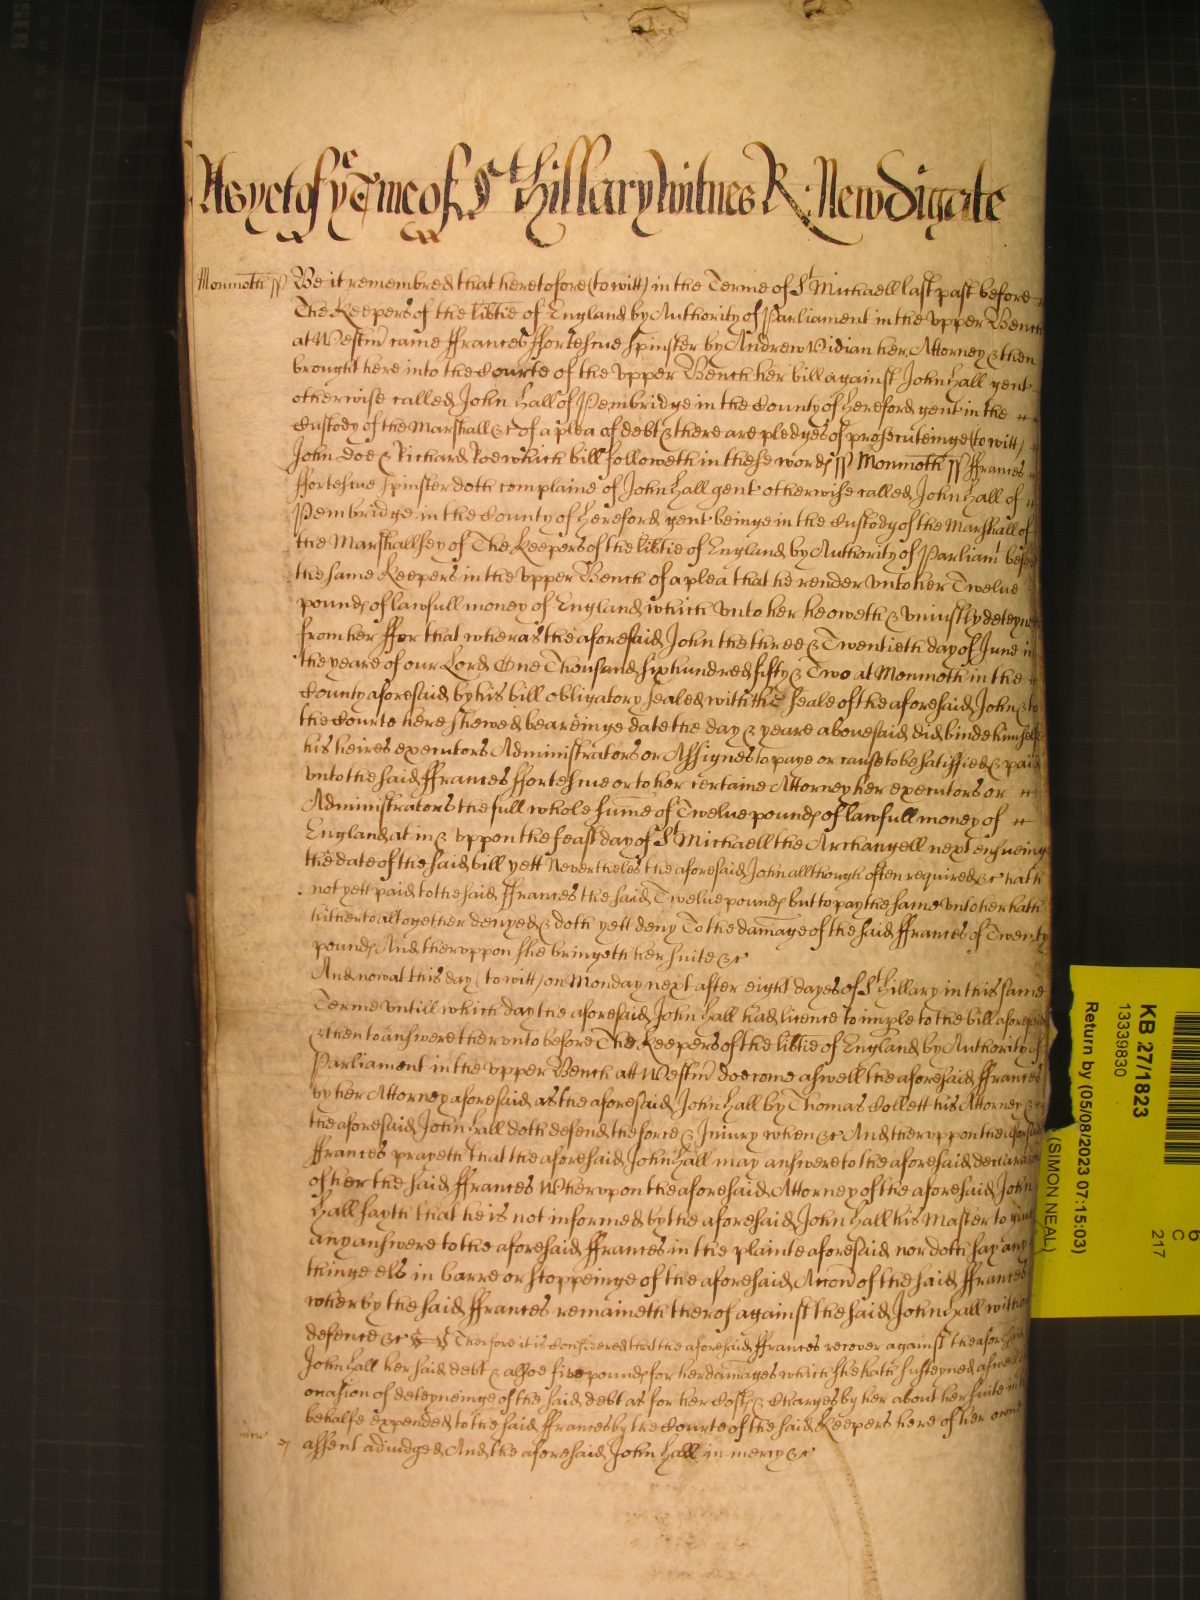 As yet of ye Tme of St Hillary Witnes R: Newdigate
Monmoth ss Be it remembred that heretofore (to witt) in the Terme of St Michaell last past before
The Keepers of the libtie of England by Authority of Parliament in the vpper Bench
at Westm came ffrances ffortescue spinster by Andrew Vidian her Attorney & then
brought here into the Courte of the vpper Bench her bill against John Hall gent
otherwise called John Hall of Pembridge in the County of Hereford gent in the
Custody of the Marshall &c of a plea of debt & there are pledges of prosecuteinge (to witt)
John Doe & Richard Roe which bill followeth in these words ss Monmoth ss ffrances
ffortescue spinster doth complaine of John Hall gent otherwise called John Hall of
Pembridge in the County of Hereford gent beinge in the Custody of the Marshall of
the Marshallsey of The Keepers of the libtie of England by Authority of Parliamt before
the same Keepers in the vpper Bench of a plea that he render vnto her Twelve
pounds of lawfull money of England which vnto her he oweth & vniustly deteyneth
from her ffor that wheras the aforesaid John the three & Twentieth day of June in
the yeare of our Lord One Thousand six hundred fifty & Two at Monmoth in the
County aforesaid by his bill obligatory sealed with the seale of the aforesaid John & to
the Courte here shewed beareinge date the day & yeare abovesaid did binde himselfe
his heires executors Administrators or Assignes to paye or cause to be satisfied & paid
vnto the said ffrances ffortescue or to her certaine Attorney her executors or
Administrators the full whole sume of Twelve pounds of lawfull money of
England at in & vppon the feast day of St Michaell the Archangell next ensueing
the date of the said bill yett Nevertheles the aforesaid John allthough often required &c hath
not yett paid to the said ffrances the said Twelve pounds but to pay the same vnto her hath
hitherto altogether denyed & doth yett deny To the damage of the said ffrances of Twenty
pounds And thervppon she bringeth her suite &c
And now at this day (to witt) on Monday next after eight dayes of St Hillary in this same
Terme vntill which day the aforesaid John Hall had licence to imple to the bill aforesaid
& then to answere thervnto before The Keepers of the libtie of England by Authority of
Parliament in the vpper Bench att Westm doe come aswell the aforesaid ffrances
by her Attorney aforesaid as the aforesaid John Hall by Thomas Collett his Attorney &
the aforesaid John Hall doth defend the force & Iniury when &c And thervppon the aforesaid
ffrances prayeth that the aforesaid John Hall may answere to the aforesaid declaracon
of her the said ffrances Whervpon the aforesaid Attorney of the aforesaid John
Hall sayth that he is not informed by the aforesaid John Hall his Master to give
any answere to the aforesaid ffrances in the plainte aforesaid nor doth say any
thinge els in barre or stoppeinge of the aforesaid Accon of the said ffrances
wherby the said ffrances remaineth therof against the said John Hall without
defence &c Therfore it is considered that the aforesaid ffrances recover against the aforesaid
John Hall her said debt & alsoe five pounds for her damages which she hath susteyned aswell
occasion of deteyneinge of the said debt as for her Costs & Charges by her about her suite in this
behalfe expended to the said ffrances by the Courte of the said Keepers here of her owne
assent adiudged And the aforesaid John Hall in mercy &c
KB 27/1823
13339830
Return by (05/08/2023 07:15:03)
(SIMON NEAL)
6
C
217